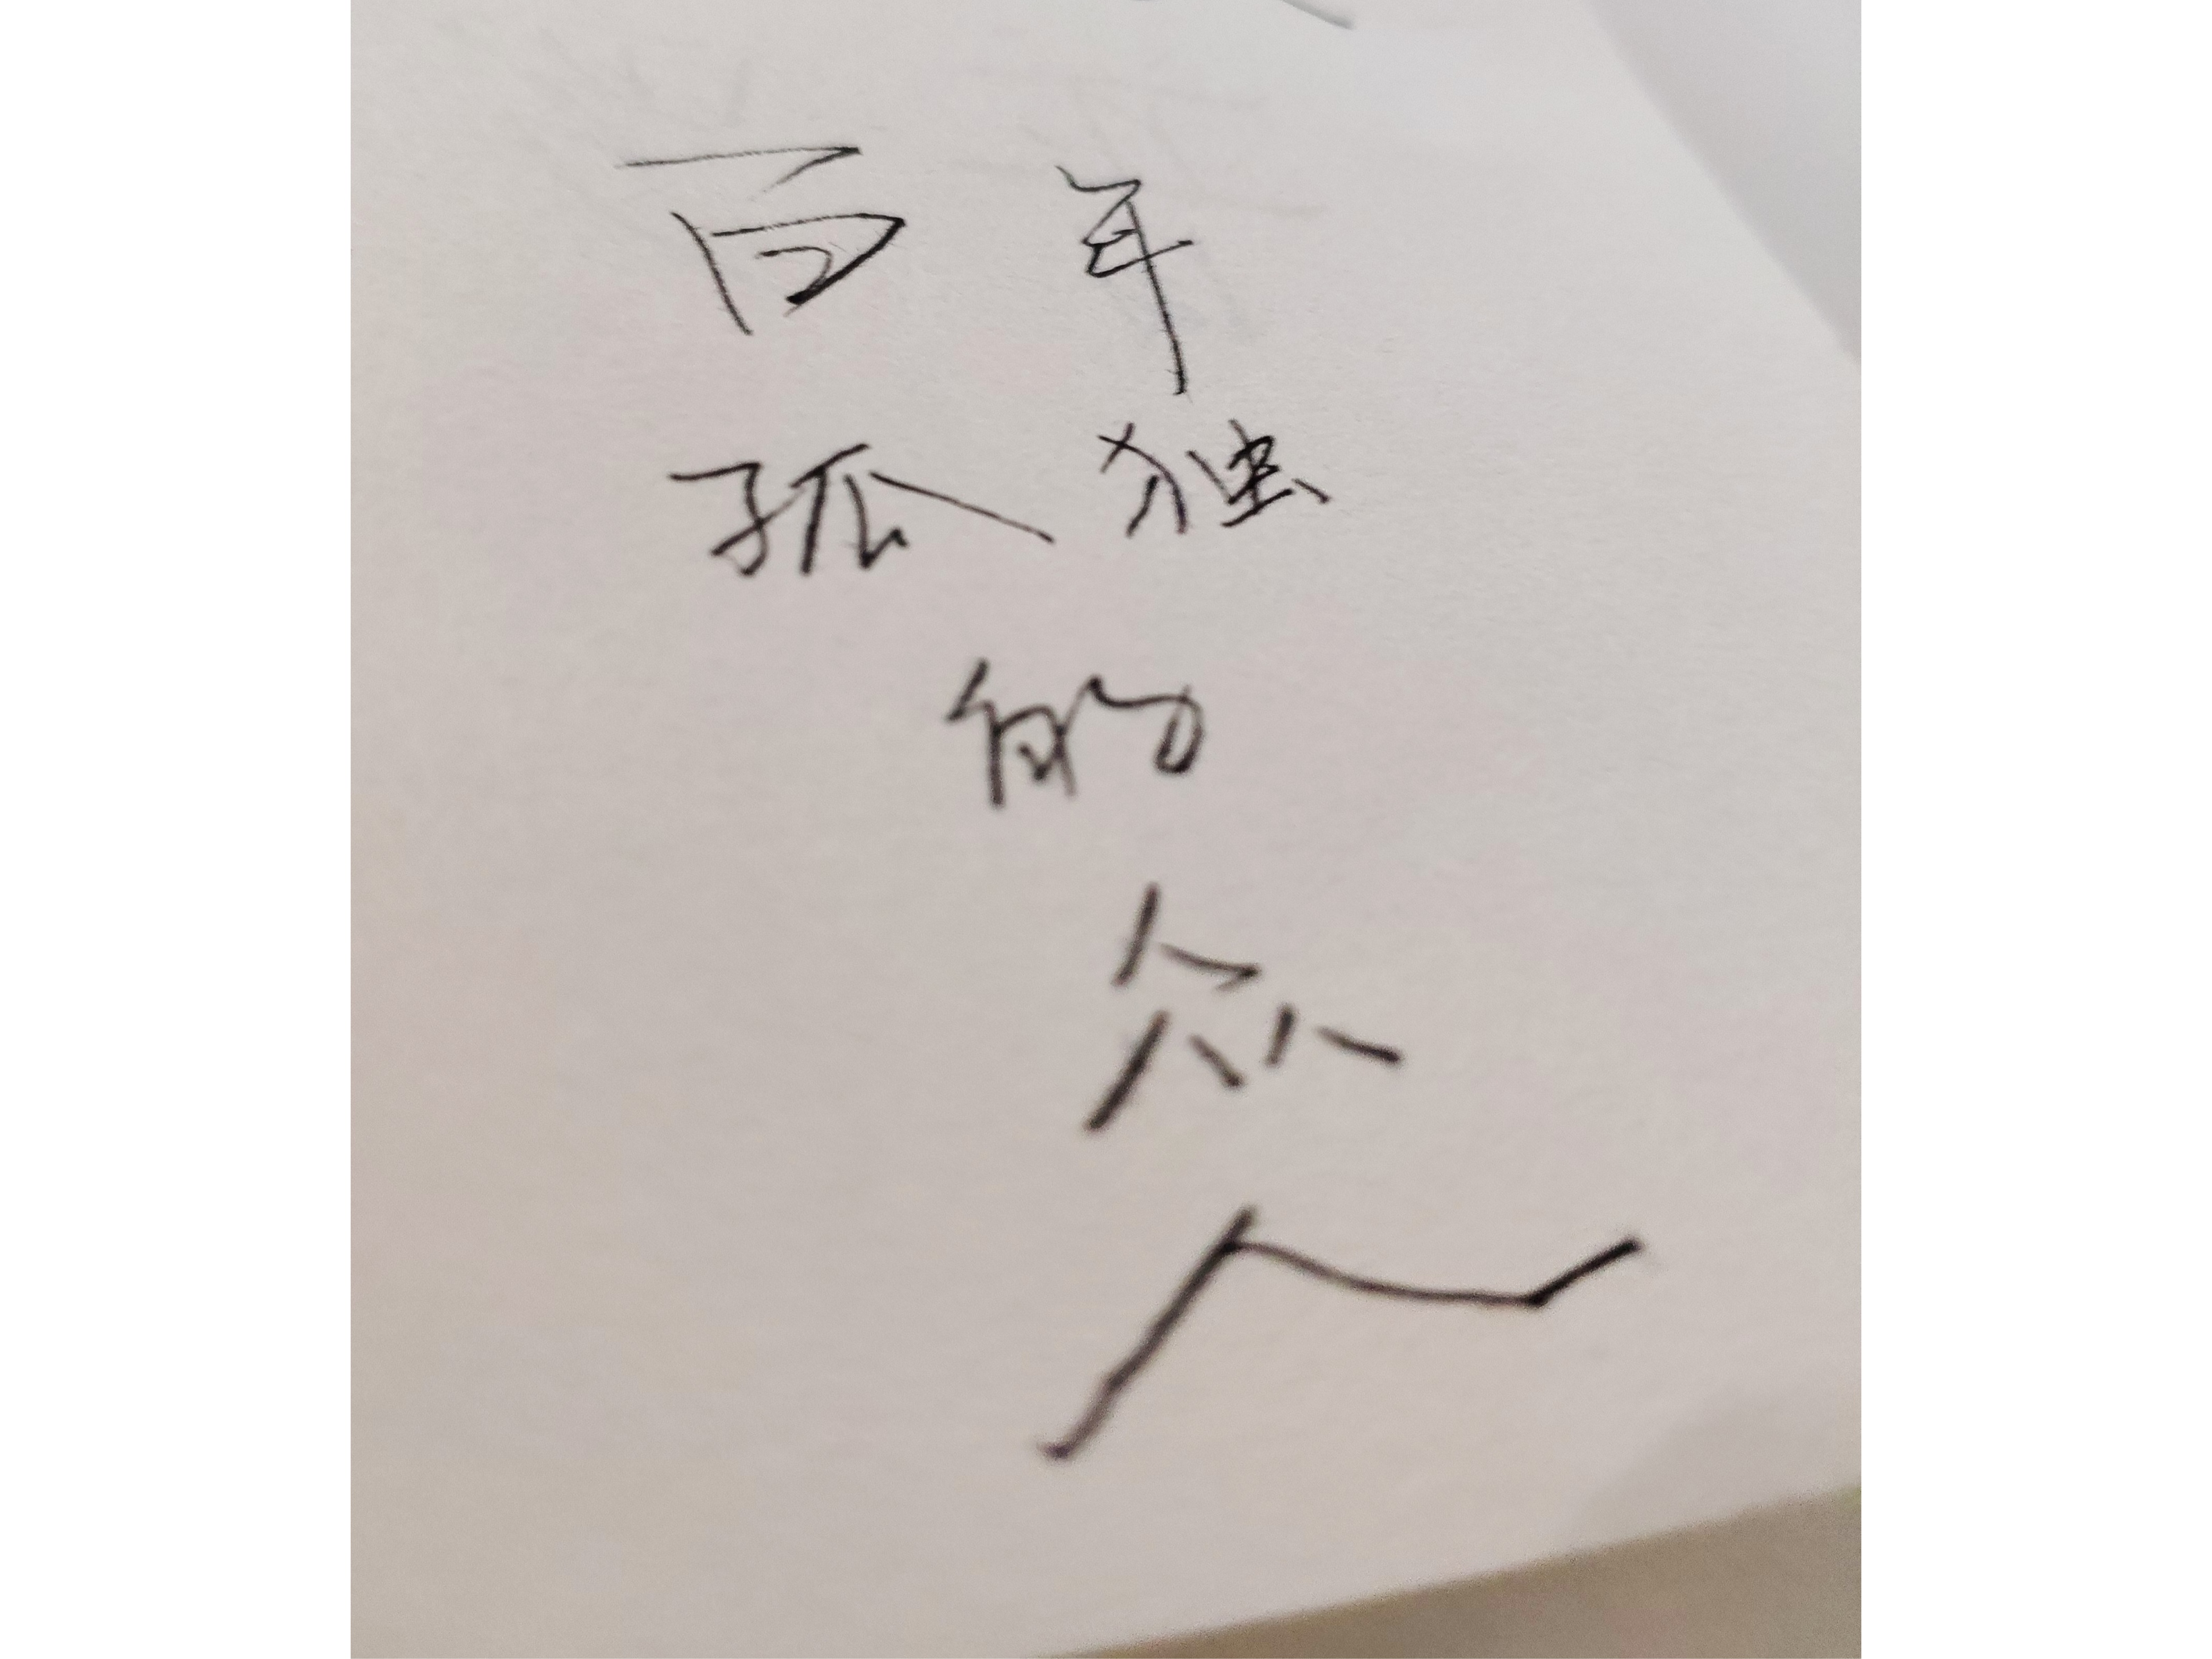 百年
孤独
的
众
人